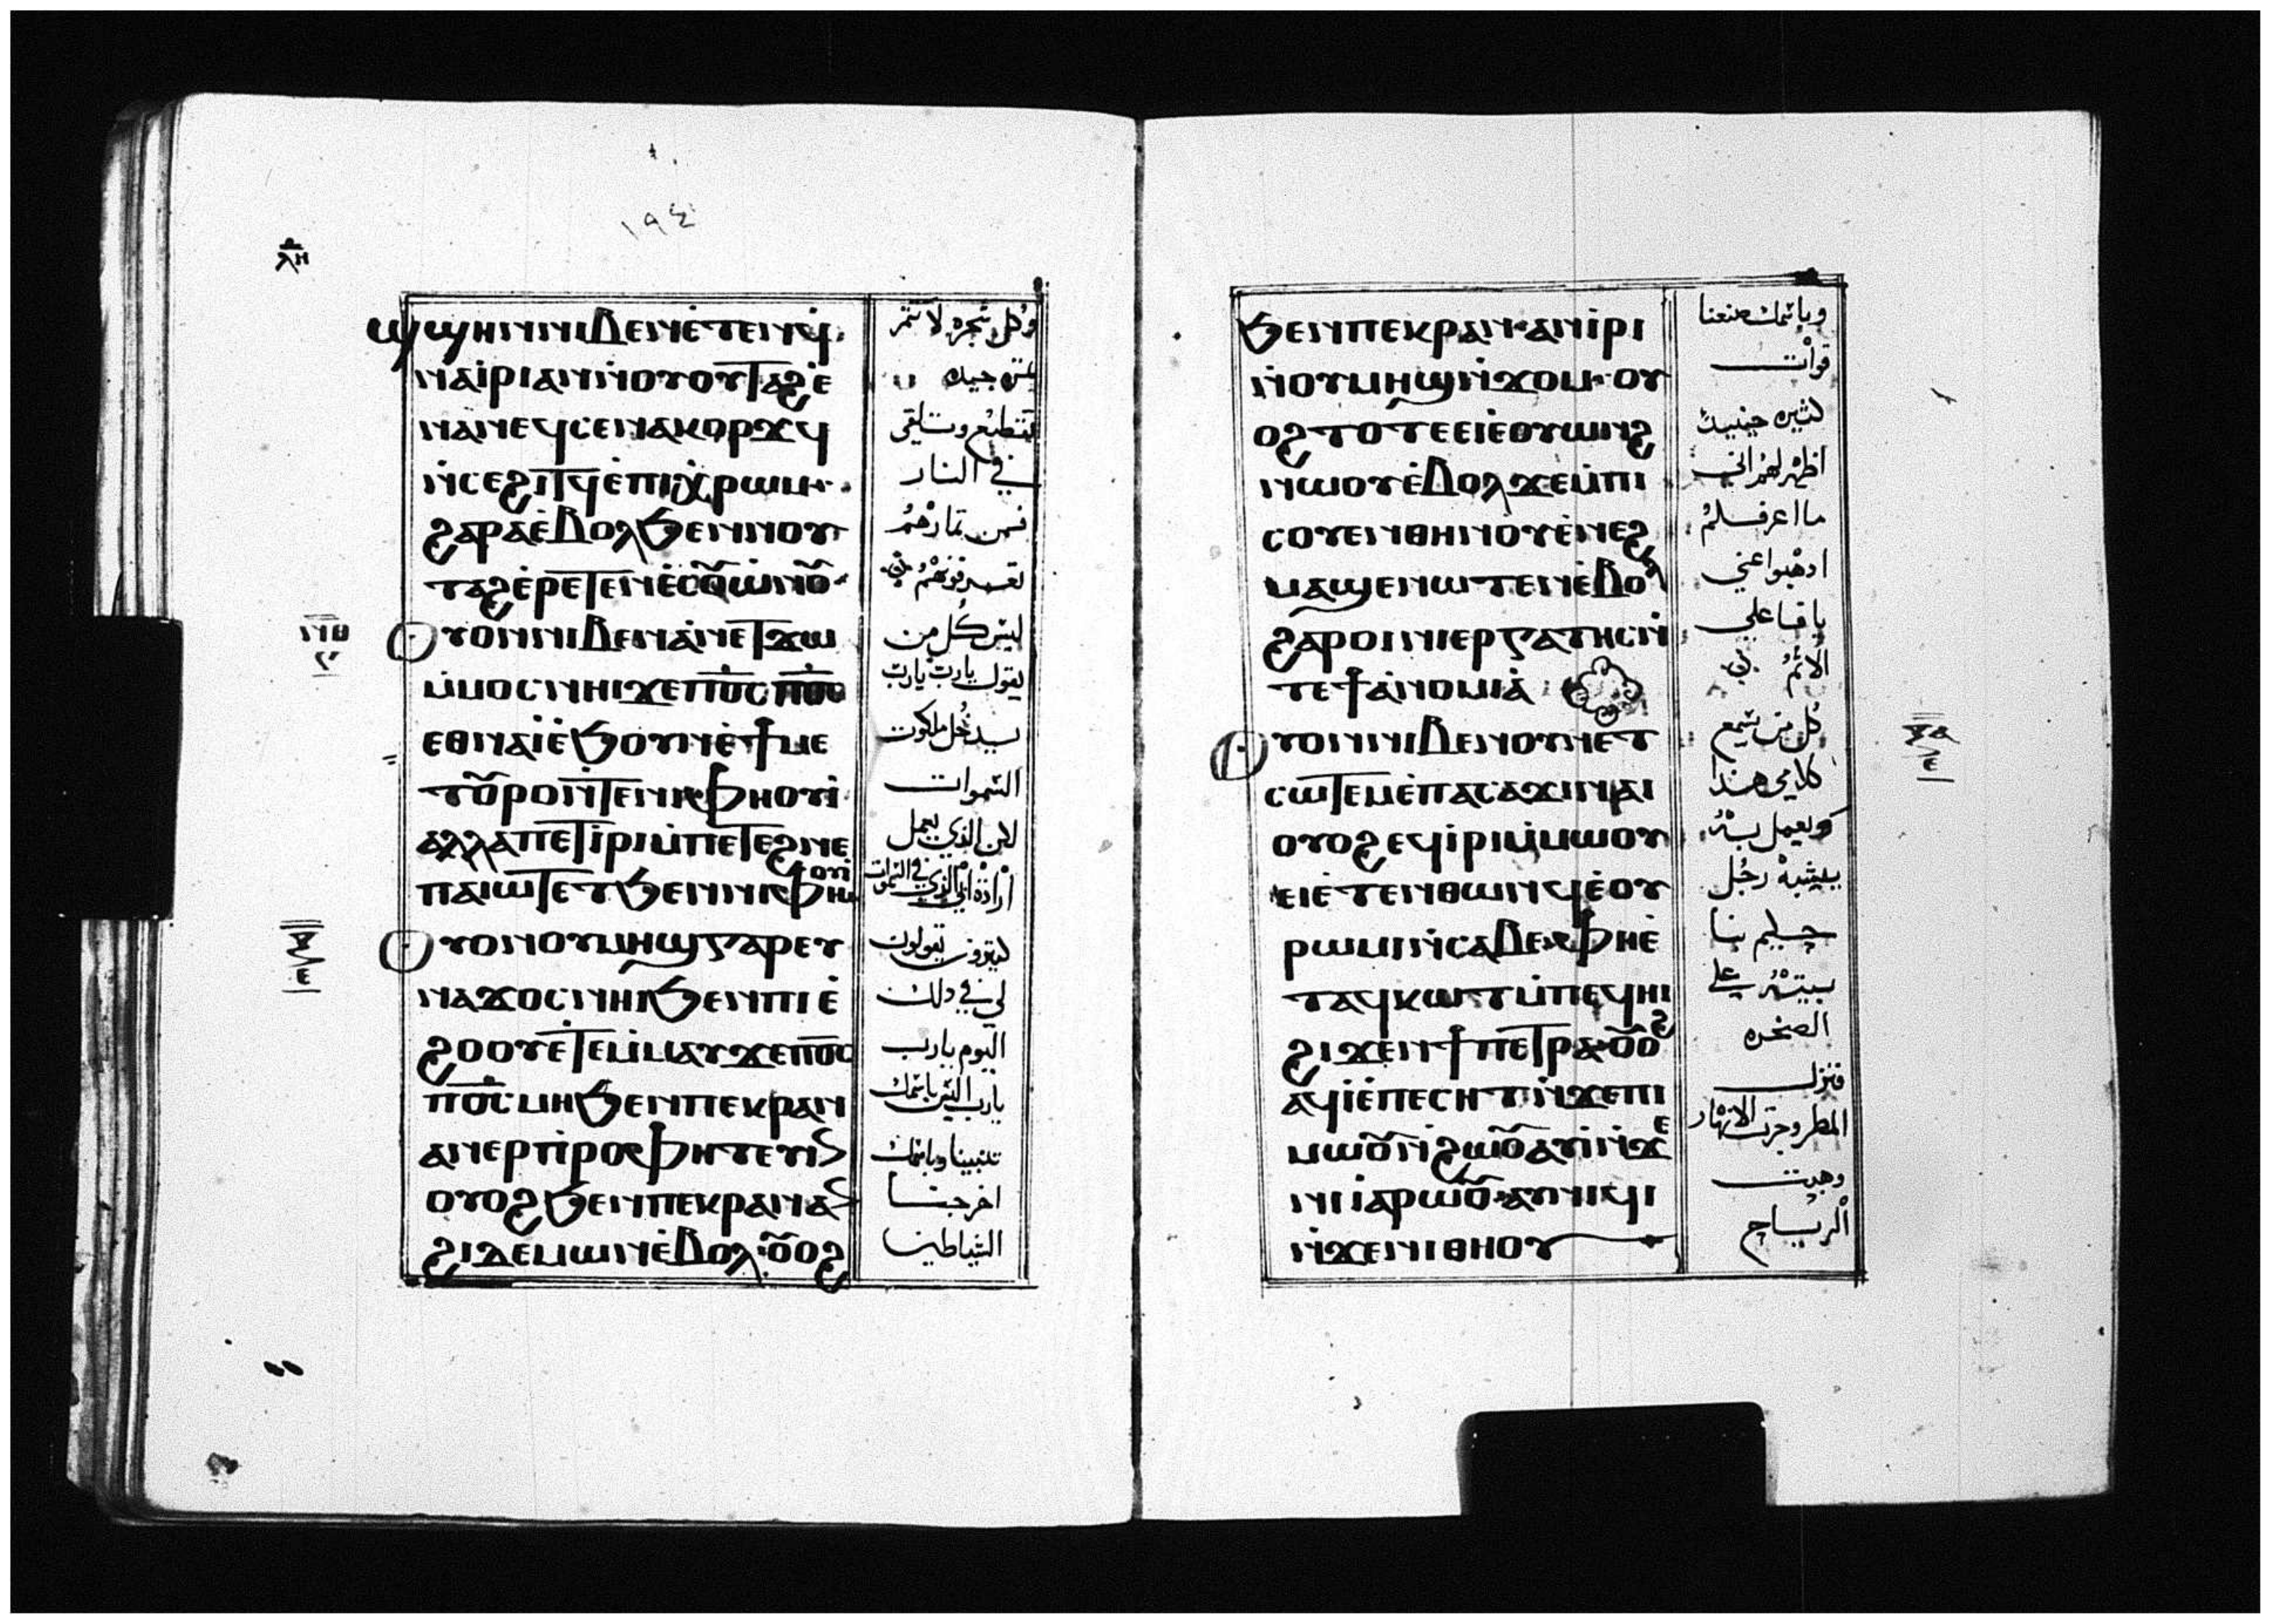 ١٩٤
ⲗⲏ
ϣϣⲏⲛⲛⲓⲃⲉⲛⲉ̀ⲧⲉⲛϥ̀
ⲛⲁⲓ̀ⲣⲓⲁⲛⲛ̀ⲟⲩⲟⲩⲧⲁϩⲉ̀
ⲛⲁⲛⲉϥⲥⲉⲛⲁⲕⲟⲣϫϥ
ⲛ̀ⲥⲉϩⲓⲧϥⲉ̀ⲡⲓⲭ̀ⲣⲱⲙ·
ϩⲁⲣⲁⲉ̀ⲃⲟⲗϧⲉⲛⲛⲟⲩ
ⲧⲁϩⲉ̀ⲣⲉⲧⲉⲛⲉ̀ⲥⲟ̄ⲱ̀ⲛⲟ̄·
ⲟⲩⲟⲛⲛⲓⲃⲉⲛⲁ̀ⲛⲉⲧϫⲱ
ⲙ̀ⲙⲟⲥⲛⲏⲓϫⲉⲡⲟ̄ⲥⲡⲟ̄ⲥ
ⲉⲑⲛⲁⲓ̀ⲉ̀ϧⲟⲩⲛⲉ̀ϯⲙⲉ
ⲧⲟ̄ⲣⲟⲛ̀ⲧⲉⲛⲓⲫⲏⲟⲩⲓ̀
ⲁⲗⲗⲁⲡⲉⲧⲓ̀ⲣⲓⲙ̀ⲡⲉⲧⲉϩⲛⲉ
ⲡⲁⲓⲱⲧⲉⲧϧⲉⲛⲛⲓⲫⲏⲟⲩⲓ̀
ⲟⲩⲟⲛⲟⲩⲙⲏϣⲅⲁⲣⲉⲩ
ⲛⲁϫⲟⲥⲛⲏⲓϧⲉⲛⲡⲓⲉ̀
ϩⲟⲟⲩⲉ̀ⲧⲉⲙ̀ⲙⲁⲩϫⲉⲡⲟ̄ⲥ
ⲡⲟ̄ⲥⲙⲏϧⲉⲛⲡⲉⲕⲣⲁⲛ
ⲁⲛⲉⲣⲡ̀ⲣⲟⲫⲏⲧⲉⲩⲓⲛ
ⲟⲩⲟϩϧⲉⲛⲡⲉⲕⲣⲁⲛⲁⲛ
ϩⲓⲇⲉⲙⲱⲛⲉ̀ⲃⲟⲗ·ⲟ̄ⲟϩ
وكل شجره لا تثمر
في النار
فمن ثمارهم
ليس كل من
يقول يارب يارب
يدخل ملكوت
السموات
لكن الذي يعمل
ارادة ابي الذي في السموات
كثيرون يقولون
لي في ذلك
اليوم يارب
يارب اليس باسمك
تنبينا وباسمك
اخرجنا
الشياطين
ϧⲉⲛⲡⲉⲕⲣⲁⲛ·ⲁⲛⲓ̀ⲣⲓ
ⲛ̀ⲟⲩⲙⲏϣⲛ̀ϫⲟⲙ·ⲟⲩ
ⲟϩⲧⲟⲧⲉⲉⲓⲉ̀ⲟⲩⲱⲛϩ
ⲛⲱⲟⲩⲉ̀ⲃⲟⲗϫⲉⲙ̀ⲡⲓ
ⲥⲟⲩⲉⲛⲑⲏⲛⲟⲩⲉ̀ⲛⲉϩ
ⲙⲁϣⲉⲛⲱⲧⲉⲛⲉ̀ⲃⲟⲗ
ϩⲁⲣⲟⲓⲛⲓⲉⲣⲅⲁⲧⲏⲥⲛ̀
ⲧⲉϯⲁ̀ⲛⲟⲙⲓⲁ̀
ⲟⲩⲟⲛⲛⲓⲃⲉⲛⲟⲩⲛⲉⲧ
ⲥⲱⲧⲉⲙⲉ̀ⲡⲁⲥⲁϫⲓⲛⲁⲓ
ⲟⲩⲟϩⲉϥⲓ̀ⲣⲓⲙ̀ⲙⲱⲟⲩ
ⲉⲓⲉ̀ⲧⲉⲛⲑⲱⲛϥⲉ̀ⲟⲩ
ⲣⲱⲙⲓⲛ̀ⲥⲁⲃⲉⲫⲏⲉ̀
ⲧⲁϥⲕⲱⲧⲙ̀ⲡⲉϥⲏⲓ
ϩⲓϫⲉⲛϯⲡⲉⲧⲣⲁ·ⲟ̄ⲟϩ
ⲁϥⲓ̀ⲉ̀ⲡⲉⲥⲏⲧⲛ̀ϫⲉⲡⲓ
ⲙⲱⲟ̄ⲛ̀ϩⲱⲟ̄ⲁⲩⲓ̀ⲛ̀ϫⲉ
ⲛⲓⲓⲁⲣⲱⲟ̄·ⲁⲩⲛⲓϥⲓ
ⲛ̀ϫⲉⲛⲓⲑⲏⲟⲩ
وباسمك صنعنا
قوات
كثيره حينيد
اظهر لهم اني
ما اعرفكم
ادهبوا عني
يا فاعلي
الاثم
كل من يسمع
كلامي هذا
ويعمل به
يشبه رجل
حليم بنا
بيته علي
الصخره
فنزل
المطر وجرت الانهار
وهبت
الرياح